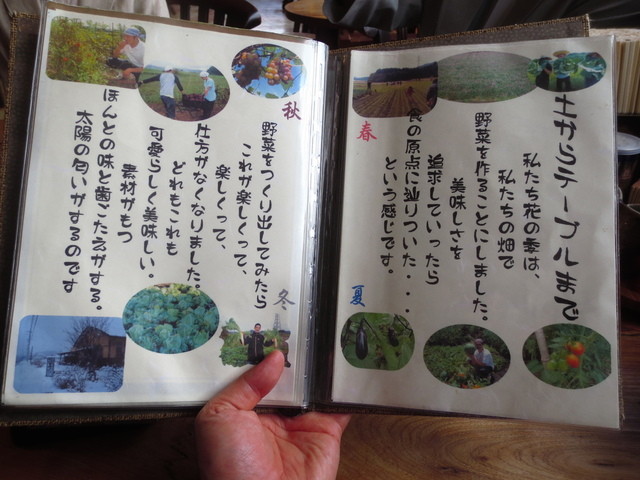 土からテーブルまで
私たち花の季は、
私たちの畑で
野菜を作ることにしました。
美味しさを
追求していったら
食の原点に辿りついた・・・
という感じです。
春
夏
秋
冬
野菜をつくり出してみたら
これが楽しくって、
楽しくって、
仕方がなくなりました。
どれもこれも
可愛らしく美味しい。
素材がもつ
ほんとの味と歯ごたえがする。
太陽の匂いがするのです